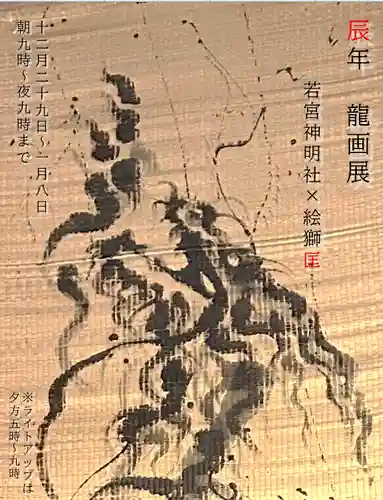 辰年 龍画展
若宮神明社×絵獅匡
十二月二十九日〜一月八日
朝九時〜夜九時まで
※ライトアップは
夕方五時〜九時